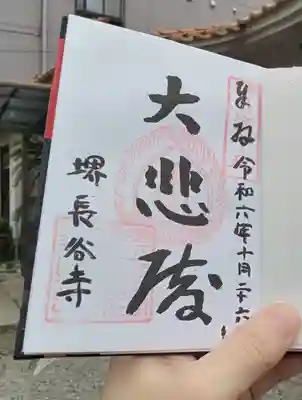 奉拝 令和六年十月二十六
大悲殿
堺 長谷寺